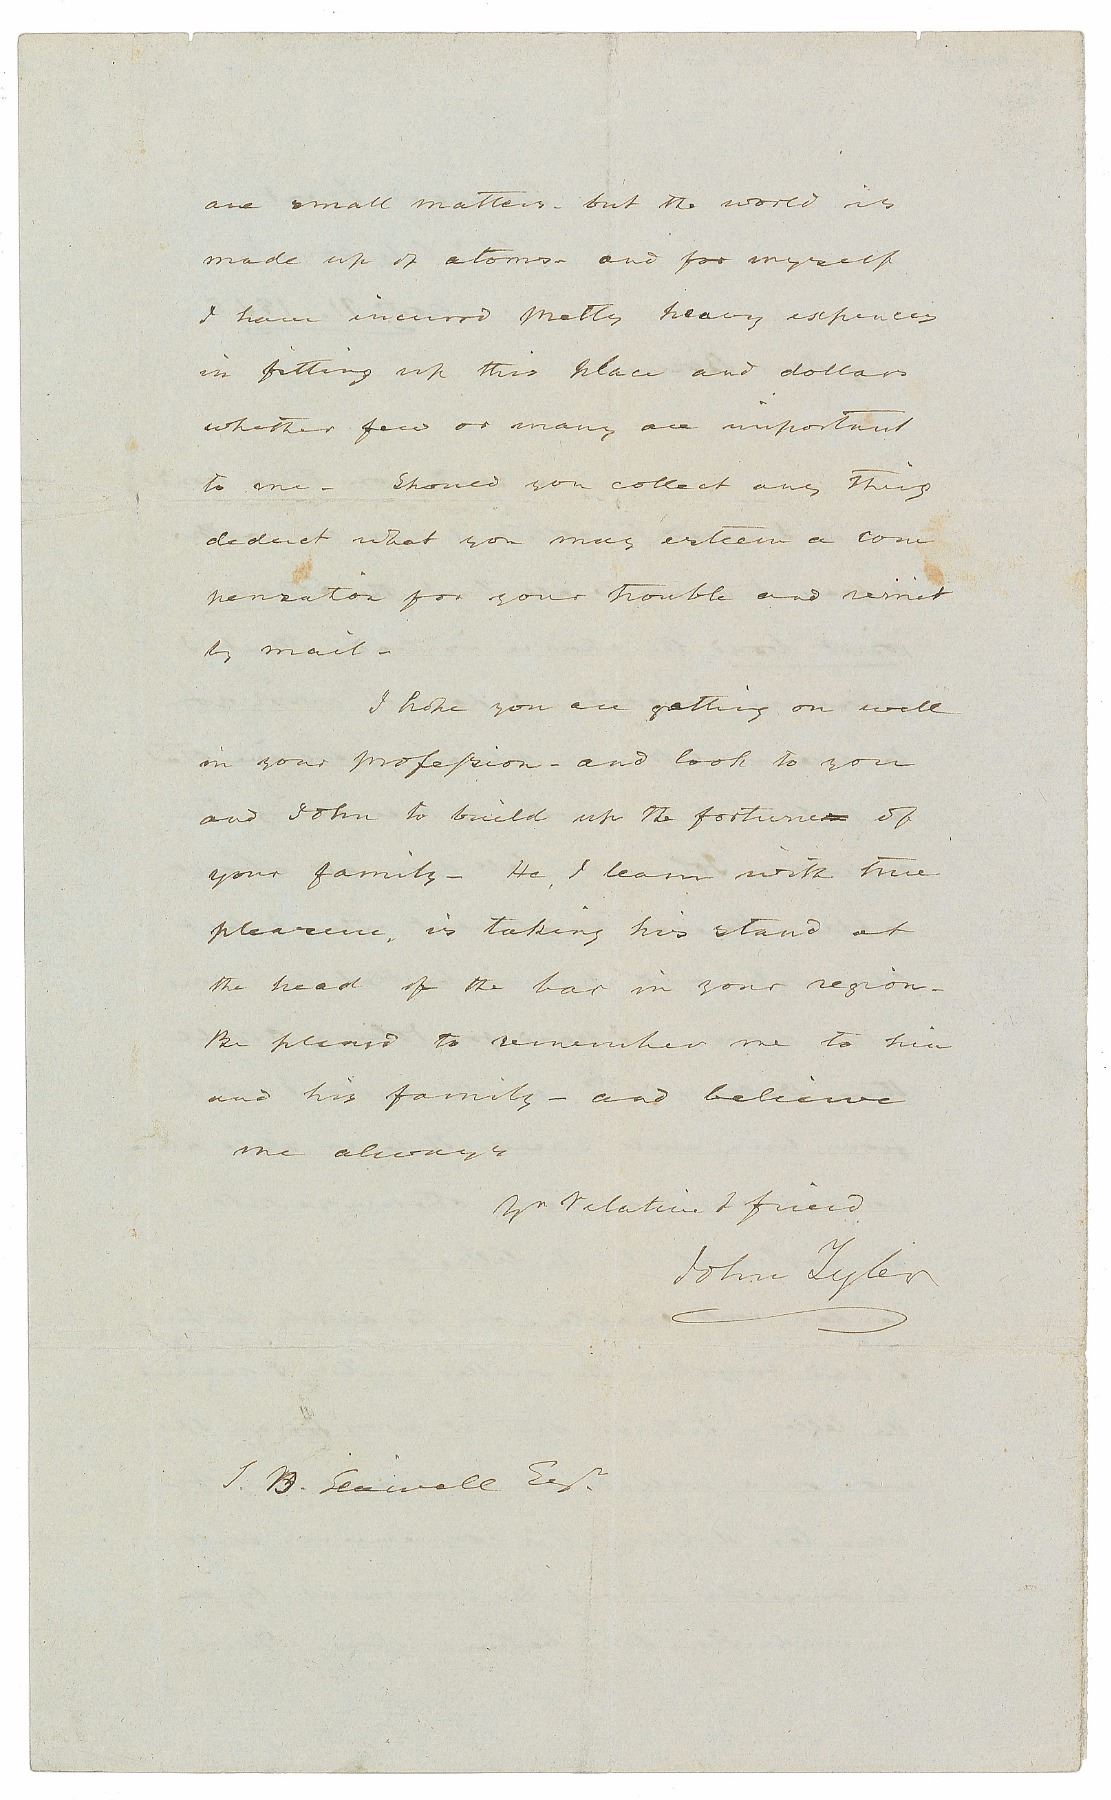 are small matters - but the world is
made up of atoms - and for myself
I have incurrd pretty heavy expences
in fitting up this place and dollars
whether few or many are important
to me - Should you collect any thing
deduct what you may esteem a com
pensation for your trouble and remit
by mail -
I hope you are getting on well
in your profession - and look to you
and John to build up the fortune of
your family - He, I learn with true
pleasure, is taking his stand at
the head of the bar in your region -
Be pleasd to remember me to him
and his family - and believe
me always
Yr relative & friend
John Tyler
B. Seawell Esqr.